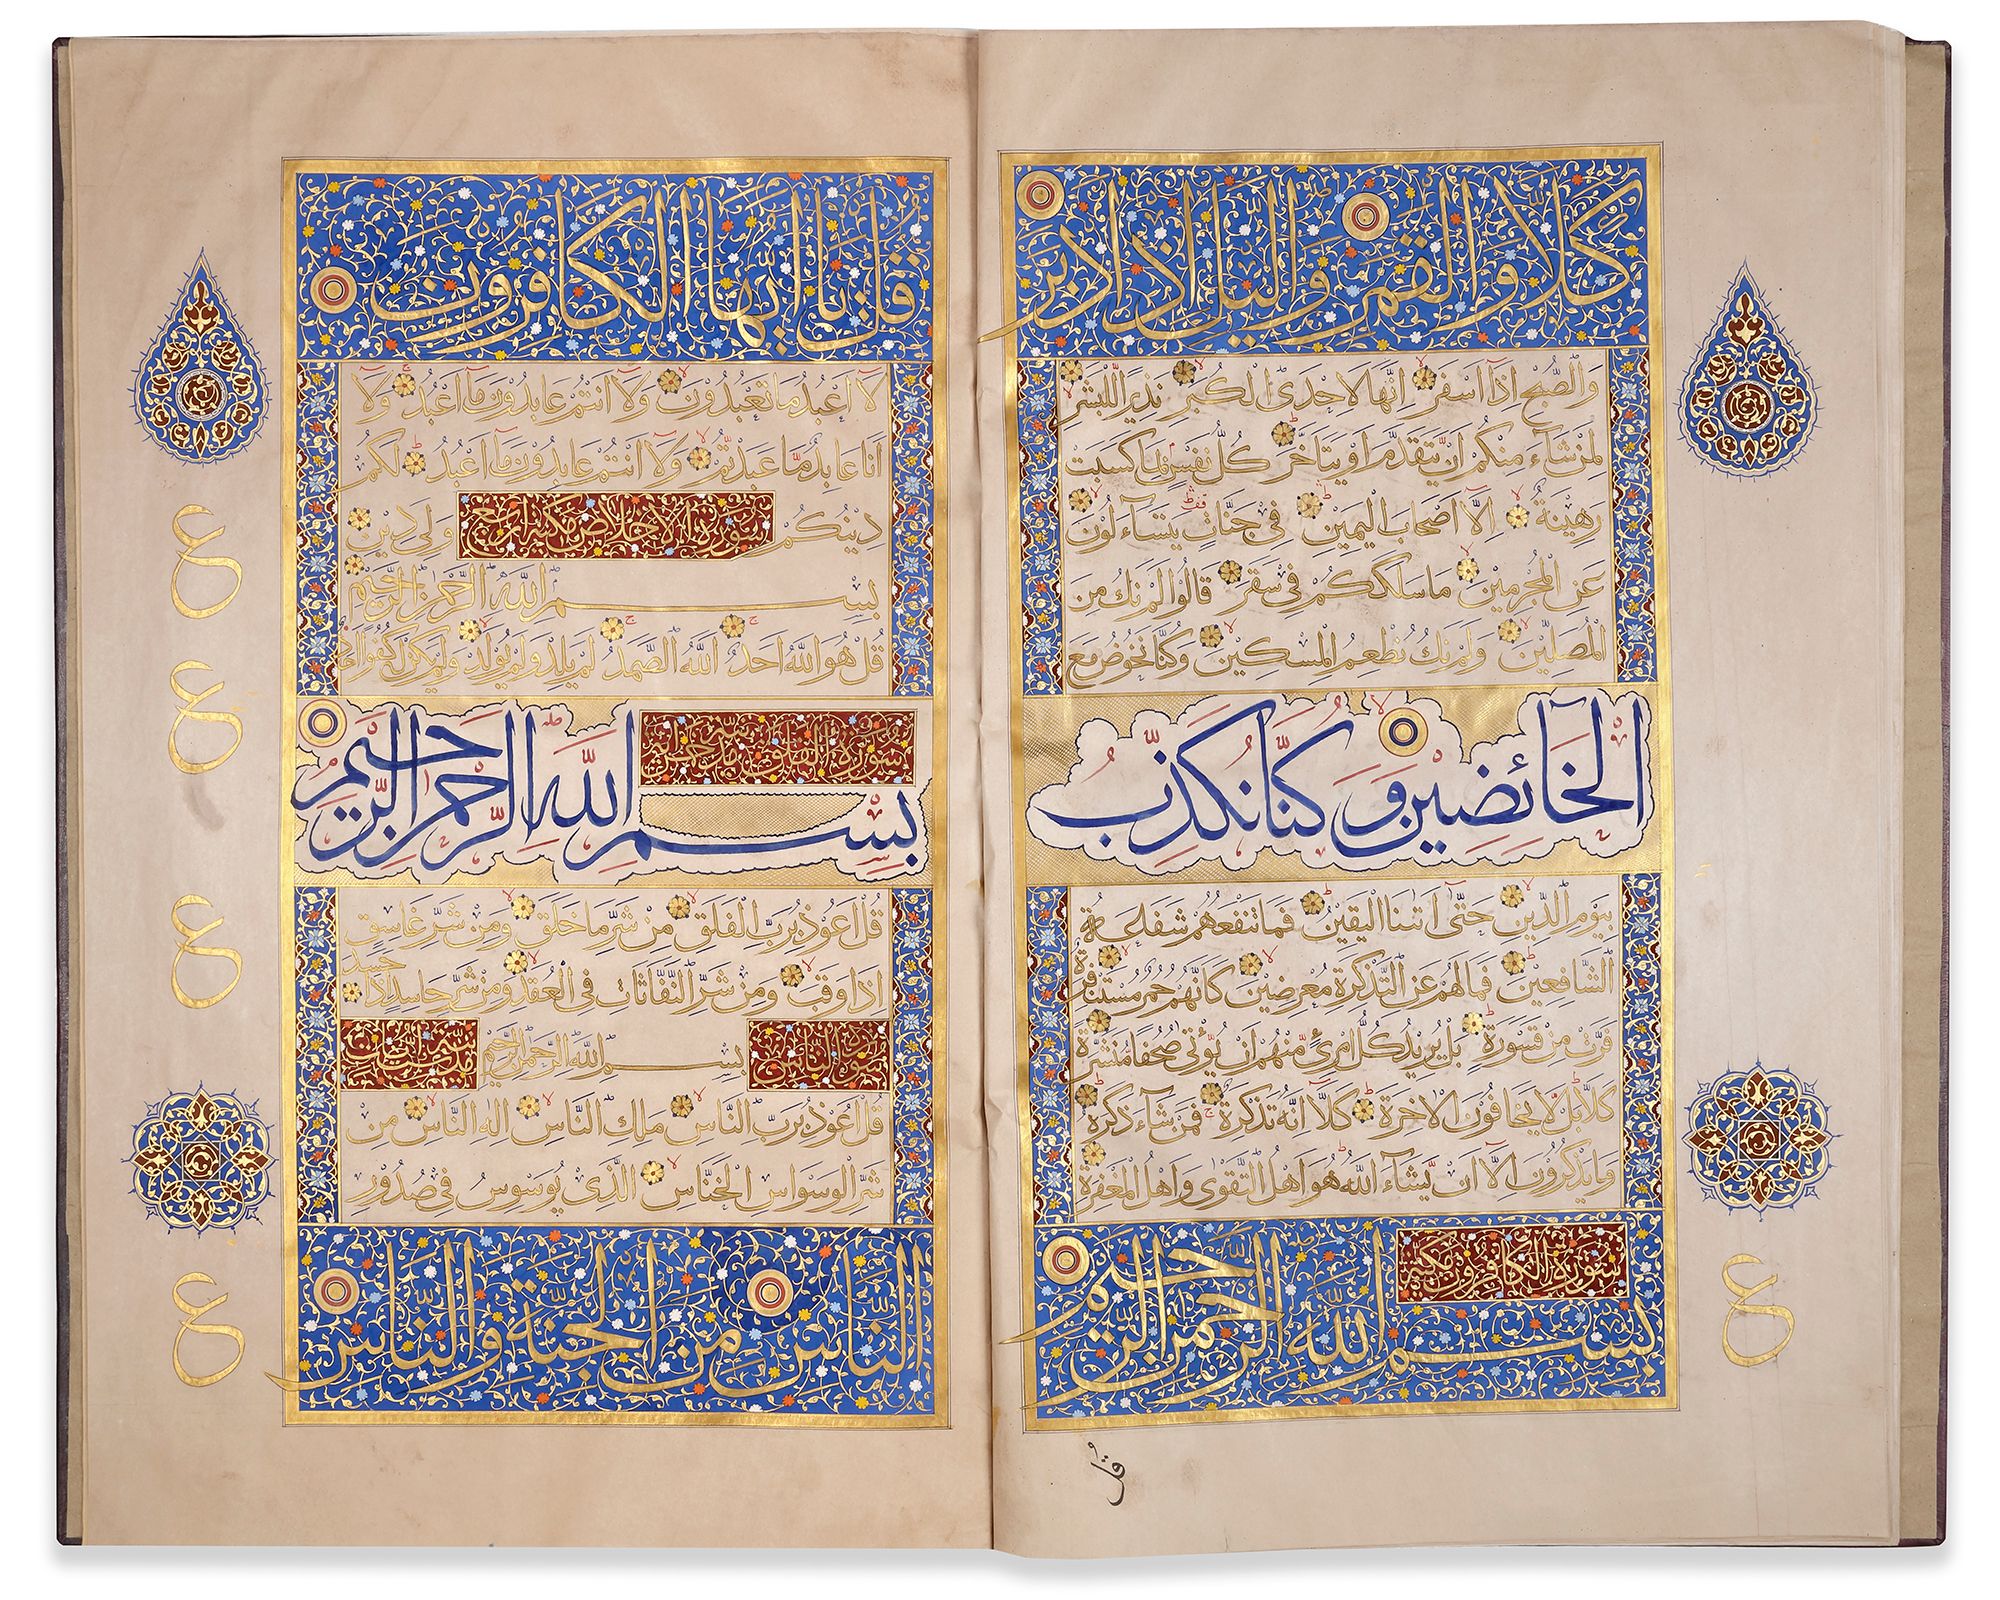 كلا والقمر والليل اذ ادبر
والصبح اذا اسفر انها لاحدى الكبر نذيرا للبشر
لمن شاء منكم ان يتقدم او يتاخر كل نفس بما كسبت
رهينة الا اصحاب اليمين في جنات يتساءلون
عن المجرمين ما سلككم في سقر قالوا لم نك من
المصلين ولم نك نطعم المسكين وكنا نخوض مع
الخائضين وكنا نكذب
بيوم الدين حتى اتنا اليقين فما تنفعهم شفاعة
الشافعين فما لهم عن التذكرة معرضين كانهم حمر مستنفرة
فرت من قسورة بل يريد كل امرئ منهم ان يؤتى صحفا منشرة
كلا بل لا يخافون الاخرة كلا انه تذكرة فمن شاء ذكره
وما يذكرون الا ان يشاء الله هو اهل التقوى واهل المغفرة
سورة الكافرون مكية
بسم الله الرحمن الرحيم
قل
ع
قل يا ايها الكافرون
لا اعبد ما تعبدون ولا انتم عابدون ما اعبد ولا
انا عابد ما عبدتم ولا انتم عابدون ما اعبد لكم
دينكم سورة الاخلاص مكية اربع ولي دين
بسم الله الرحمن الرحيم
قل هو الله احد الله الصمد لم يلد ولم يولد ولم يكن كفوا
سورة الفلق
بسم الله الرحمن الرحيم
قل اعوذ برب الفلق من شر ما خلق ومن شر غاسق
اذا وقب ومن شر النفاثات في العقد ومن شر حاسد اذا حسد
سورة الناس بسم الله الرحمن الرحيم
قل اعوذ برب الناس ملك الناس اله الناس من
شر الوسواس الخناس الذي يوسوس في صدور
الناس من الجنة والناس
ع
ع
ع
ع